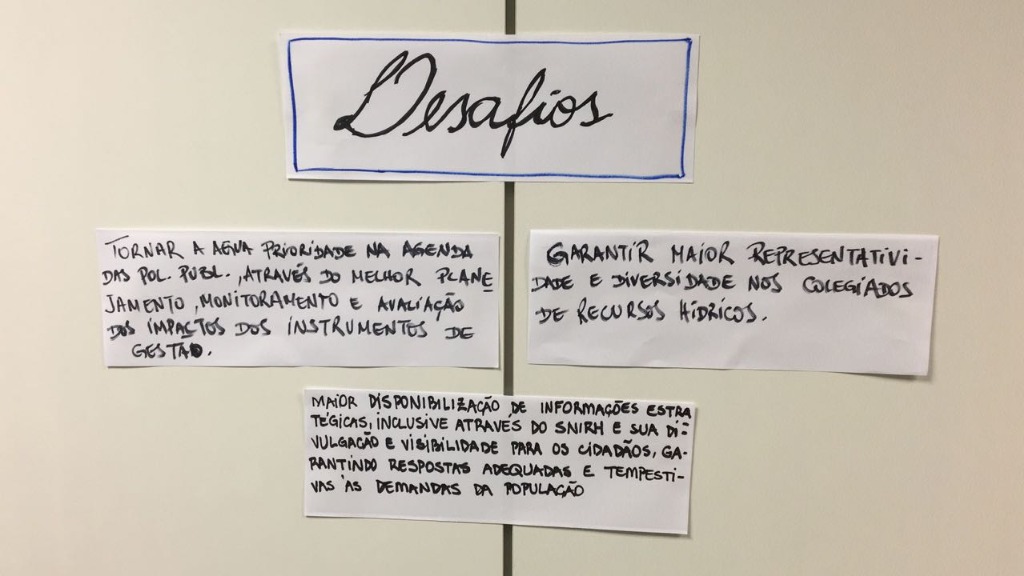 Desafios
TORNAR A AGUA PRIORIDADE NA AGENDA
DAS POL. PUBL., ATRAVÉS DO MELHOR PLANE
JAMENTO, MONITORAMENTO E AVALIAÇÃO
DOS IMPACTOS DOS INSTRUMENTOS DE
GESTÃO.
GARANTIR MAIOR REPRESENTATIVI-
DADE E DIVERSIDADE NOS COLEGIADOS
DE RECURSOS HÍDRICOS.
MAIOR DISPONIBILIZAÇÃO DE INFORMAÇÕES ESTRA
TÉGICAS, INCLUSIVE ATRAVÉS DO SNIRH E SUA DI-
VULGAÇÃO E VISIBILIDADE PARA OS CIDADÃOS, GA-
RANTINDO RESPOSTAS ADEQUADAS E TEMPESTI-
VAS ÀS DEMANDAS DA POPULAÇÃO